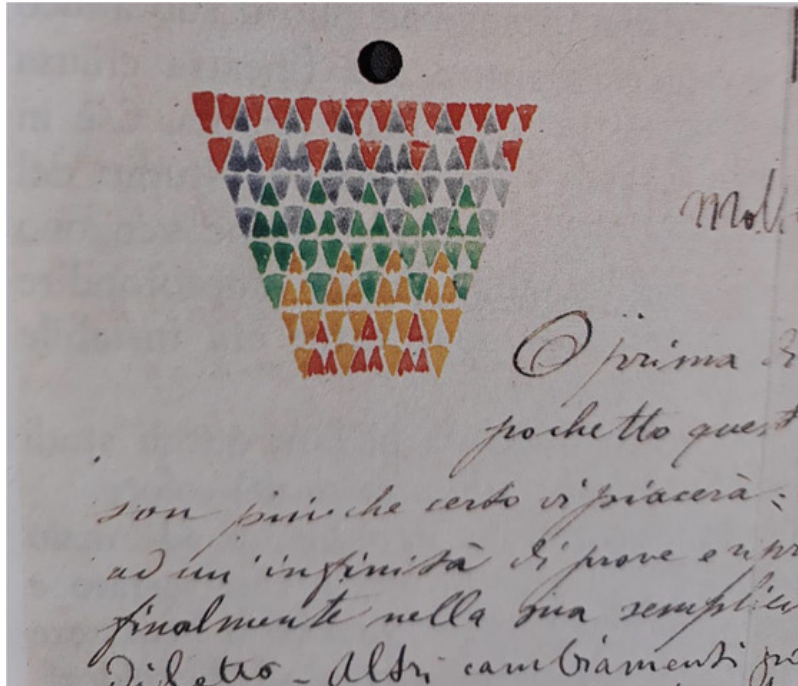 Moll
O prima d
pochetto quest
son più che certo vi piacerà:
ad un' infinità di prove e ri pr
finalmente nella sua semplici
Diletto - Altri cambiamenti